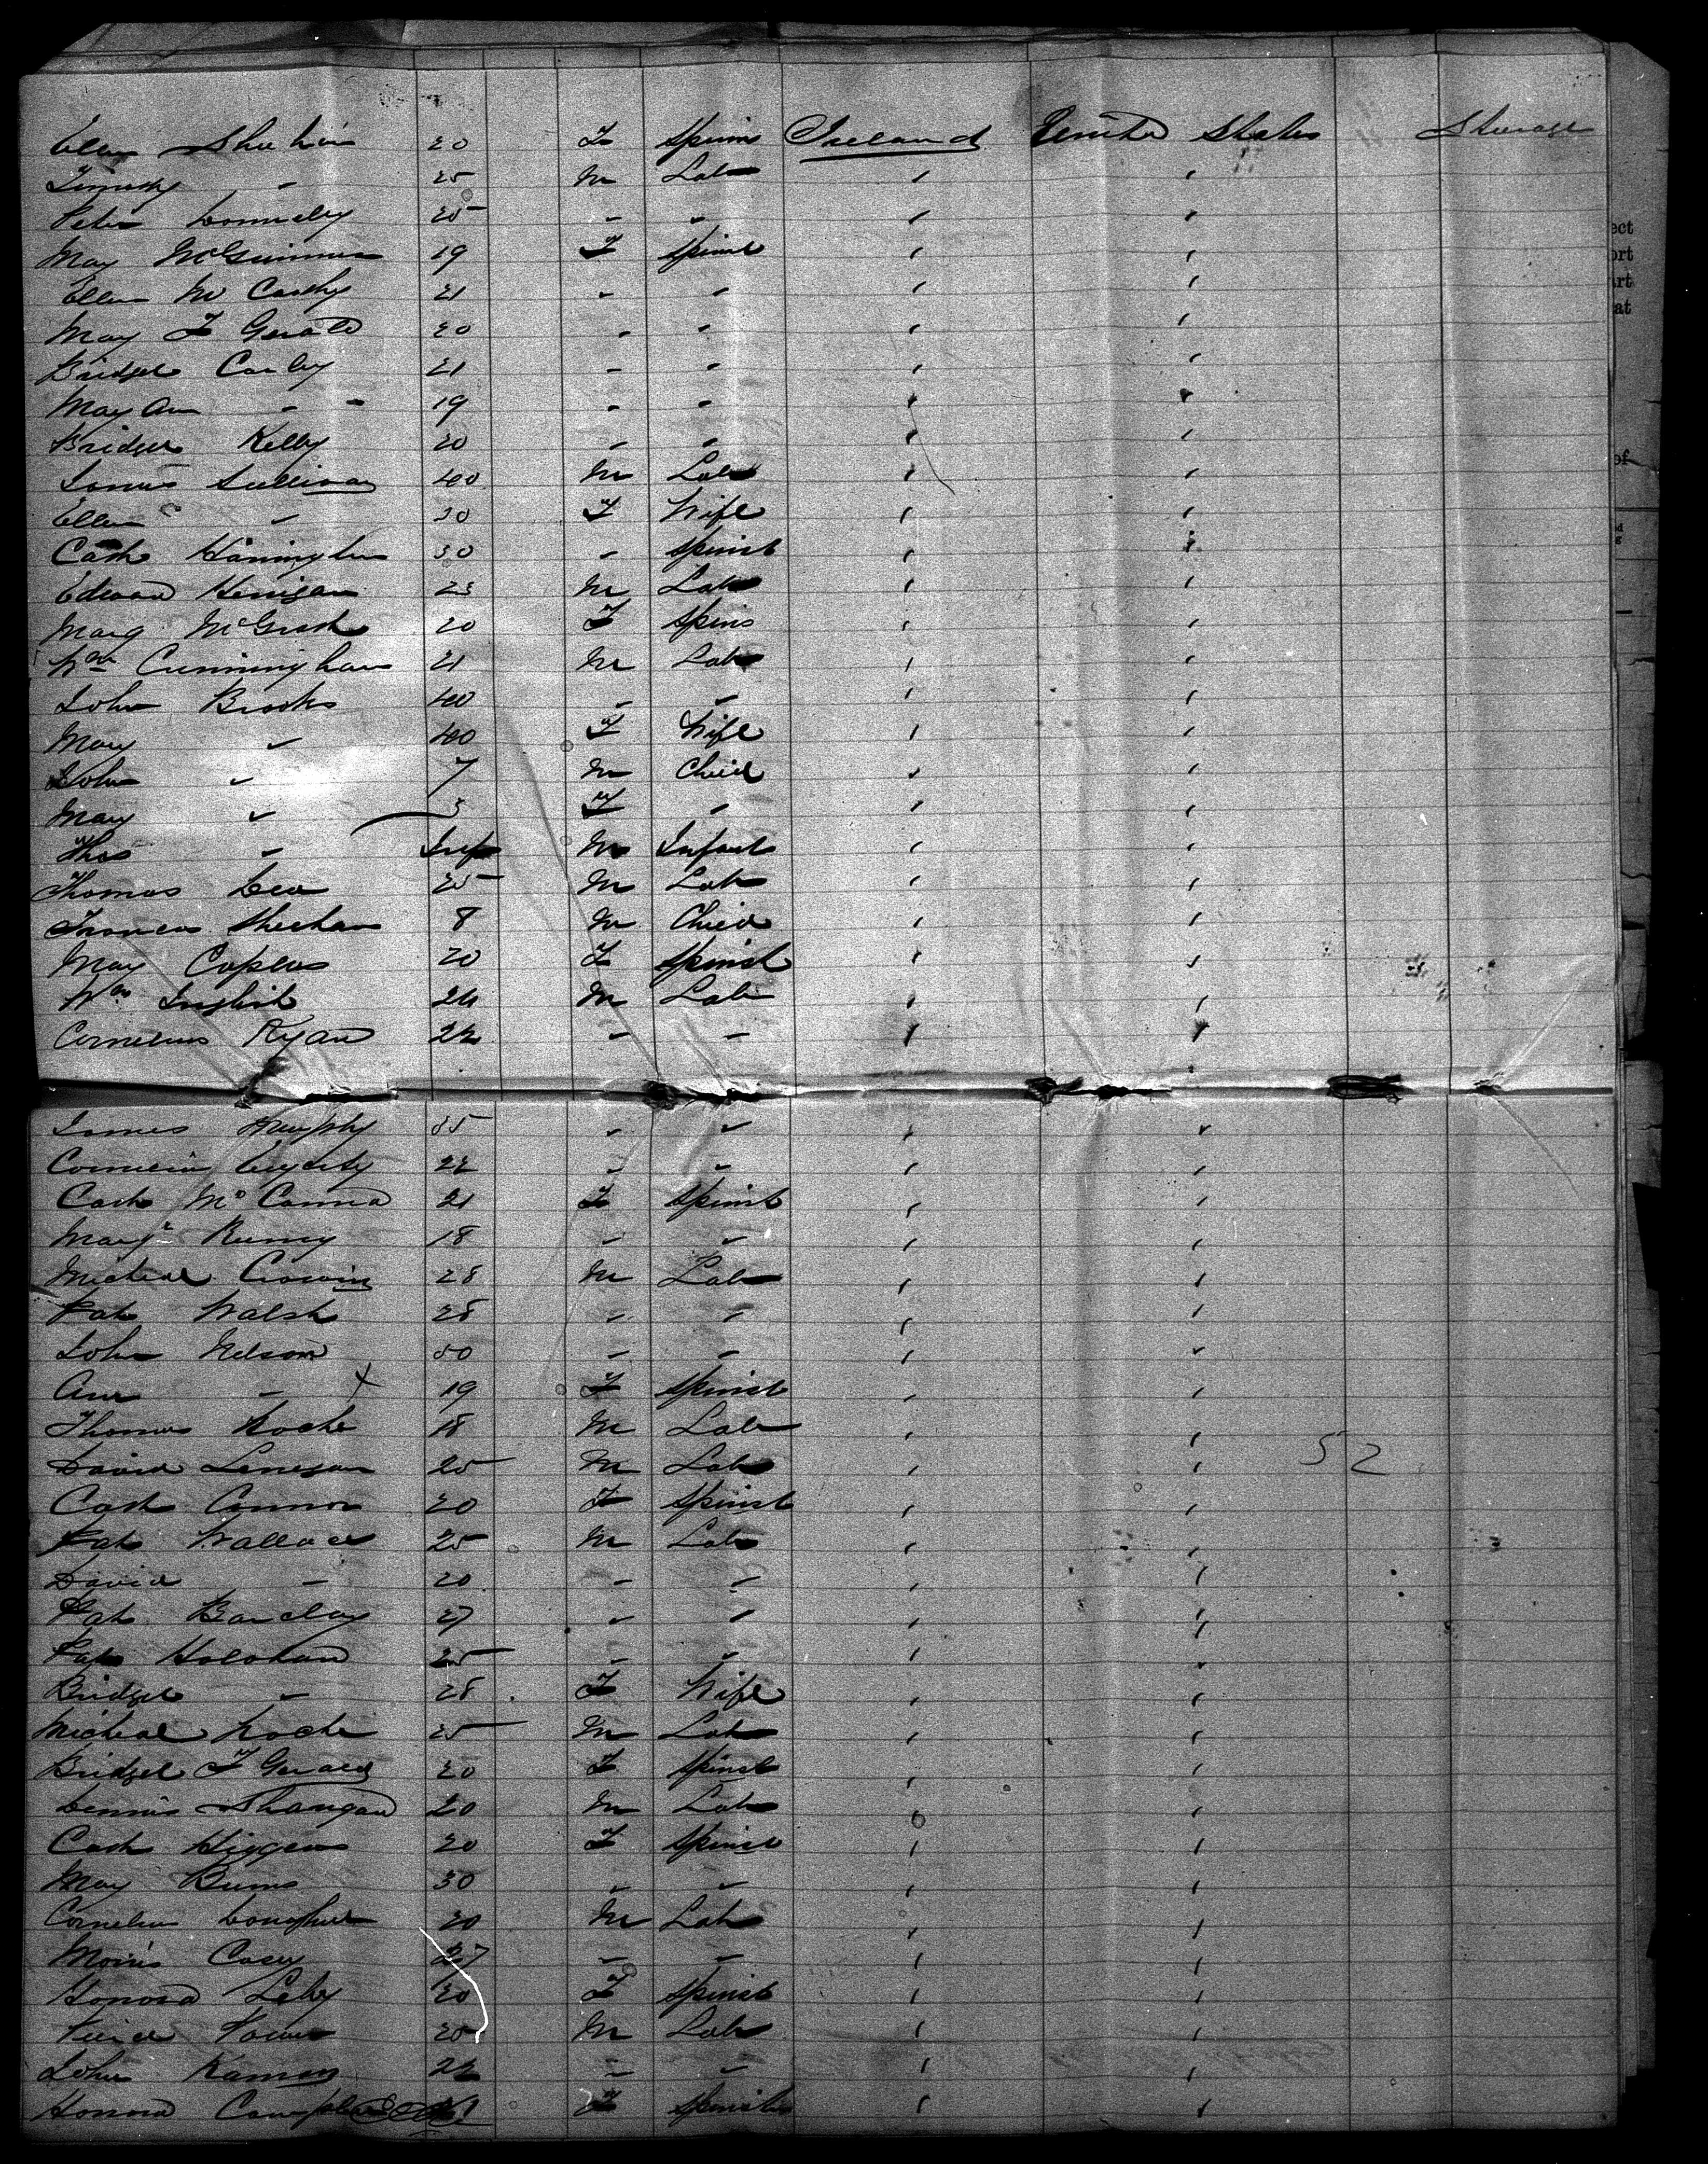 Ellen Shehin 20 F Spins Ireland United States Steerage
Timothy " 25 M Lab " "
Peter Connelly 25 " " " "
May McGuinness 19 F Spinst " "
Ellen McCarthy 21 " " " "
May F Gerald 20 " " " "
Bridget Conley 21 " " " "
May Ann " " 19 " " " "
Bridget Kelly 20 " " " "
James Sullivan 40 M Lab " "
Ellen " 30 F Wife " "
Cath 30 " Spinst " "
Edward Henigan 23 M Lab " "
Marg McGrath 20 F Spins " "
Wm Cunningham 21 M Lab " "
John Brooks 40 " " " "
Mary " 40 F Wife " "
John " 7 M Child " "
Mary " 3 F " " "
Thos " Inf M Infant " "
Thomas Lea 25 M Lab " "
Francis Sheehan 8 M Child " "
May 20 F Spinst " "
Wm English 24 M Lab " "
Cornelius Ryan 22 " " " "
James Murphy 35 " " " "
22 " " " "
Cath McCanna 21 F Spinst " "
Margt 18 " " " "
Micheal Crowing 28 M Lab " "
Pat Walsh 28 " " " "
John Nelson 50 " " " "
Ann " x 19 F Spinst " "
Thomas Roche 18 M Lab " "
David Lenegan 25 M Lab " " 52
Cath Connor 20 F Spinst " "
Pat Wallace 25 M Lab " "
David " 20 " " " "
Pat Barclay 27 " " " "
Pat Holohan 25 " " " "
Bridget " 28 F Wife " "
Micheal Roche 25 M Lab " "
Bridget F Gerald 20 F Spinst " "
Dennis Shangan 20 M Lab " "
Cath Higgens 20 F Spinst " "
May Burns 30 " " " "
Cornelius 20 M Lab " "
Morris Casey 27 " " " "
Honora Lahy 20 F Spinst " "
Peirce Power 20 M Lab " "
John 22 " " " "
Honora F Spinster " "